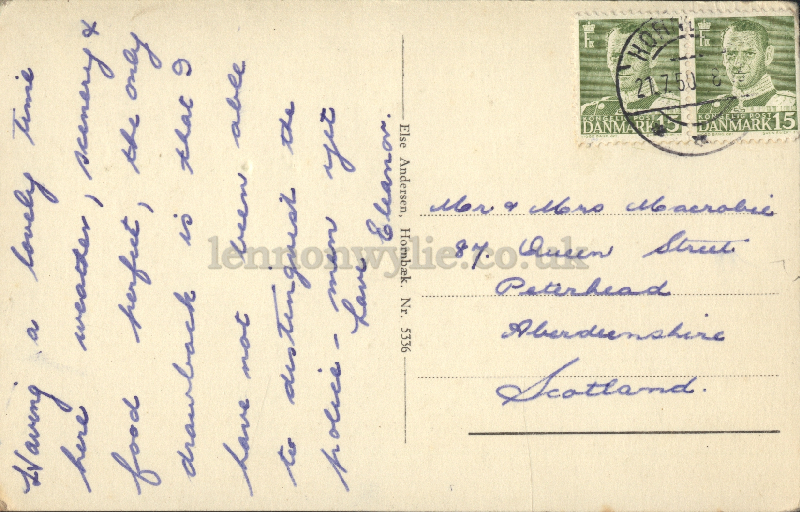 Having a lovely time
here weather, scenery &
food perfect, the only
drawback is that I
have not been able
to distinguist the
police-men yet
Love
Eleanor.
Else Andersen, Hornbæk. Nr. 5336
DANMARK 15
KONGELIG POST
DANMARK 15
27.7.50
Mr & Mrs Macrobie
87. Queen Street
Peterhead
Aberdeenshire
Scotland.
lennonwylie.co.uk